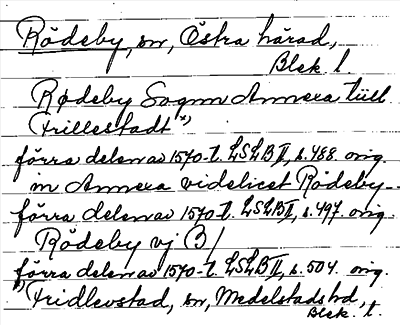 Rödeby, sn, Östra härad,
Blek. l.
Rødeby Sognn Annexa tiill
Frillestadt *)
förra delen av 1570-t. LSLB II, s. 488. orig.
in Annexa videlicet Rödeby
förra delen av 1570-t. LSLB II, s. 497. orig.
Rödeby vj B/
förra delen av 1570-t. LSLB II, s. 504. orig.
*) Fridlevstad, sn, Medelstads hd,
Blek. l.